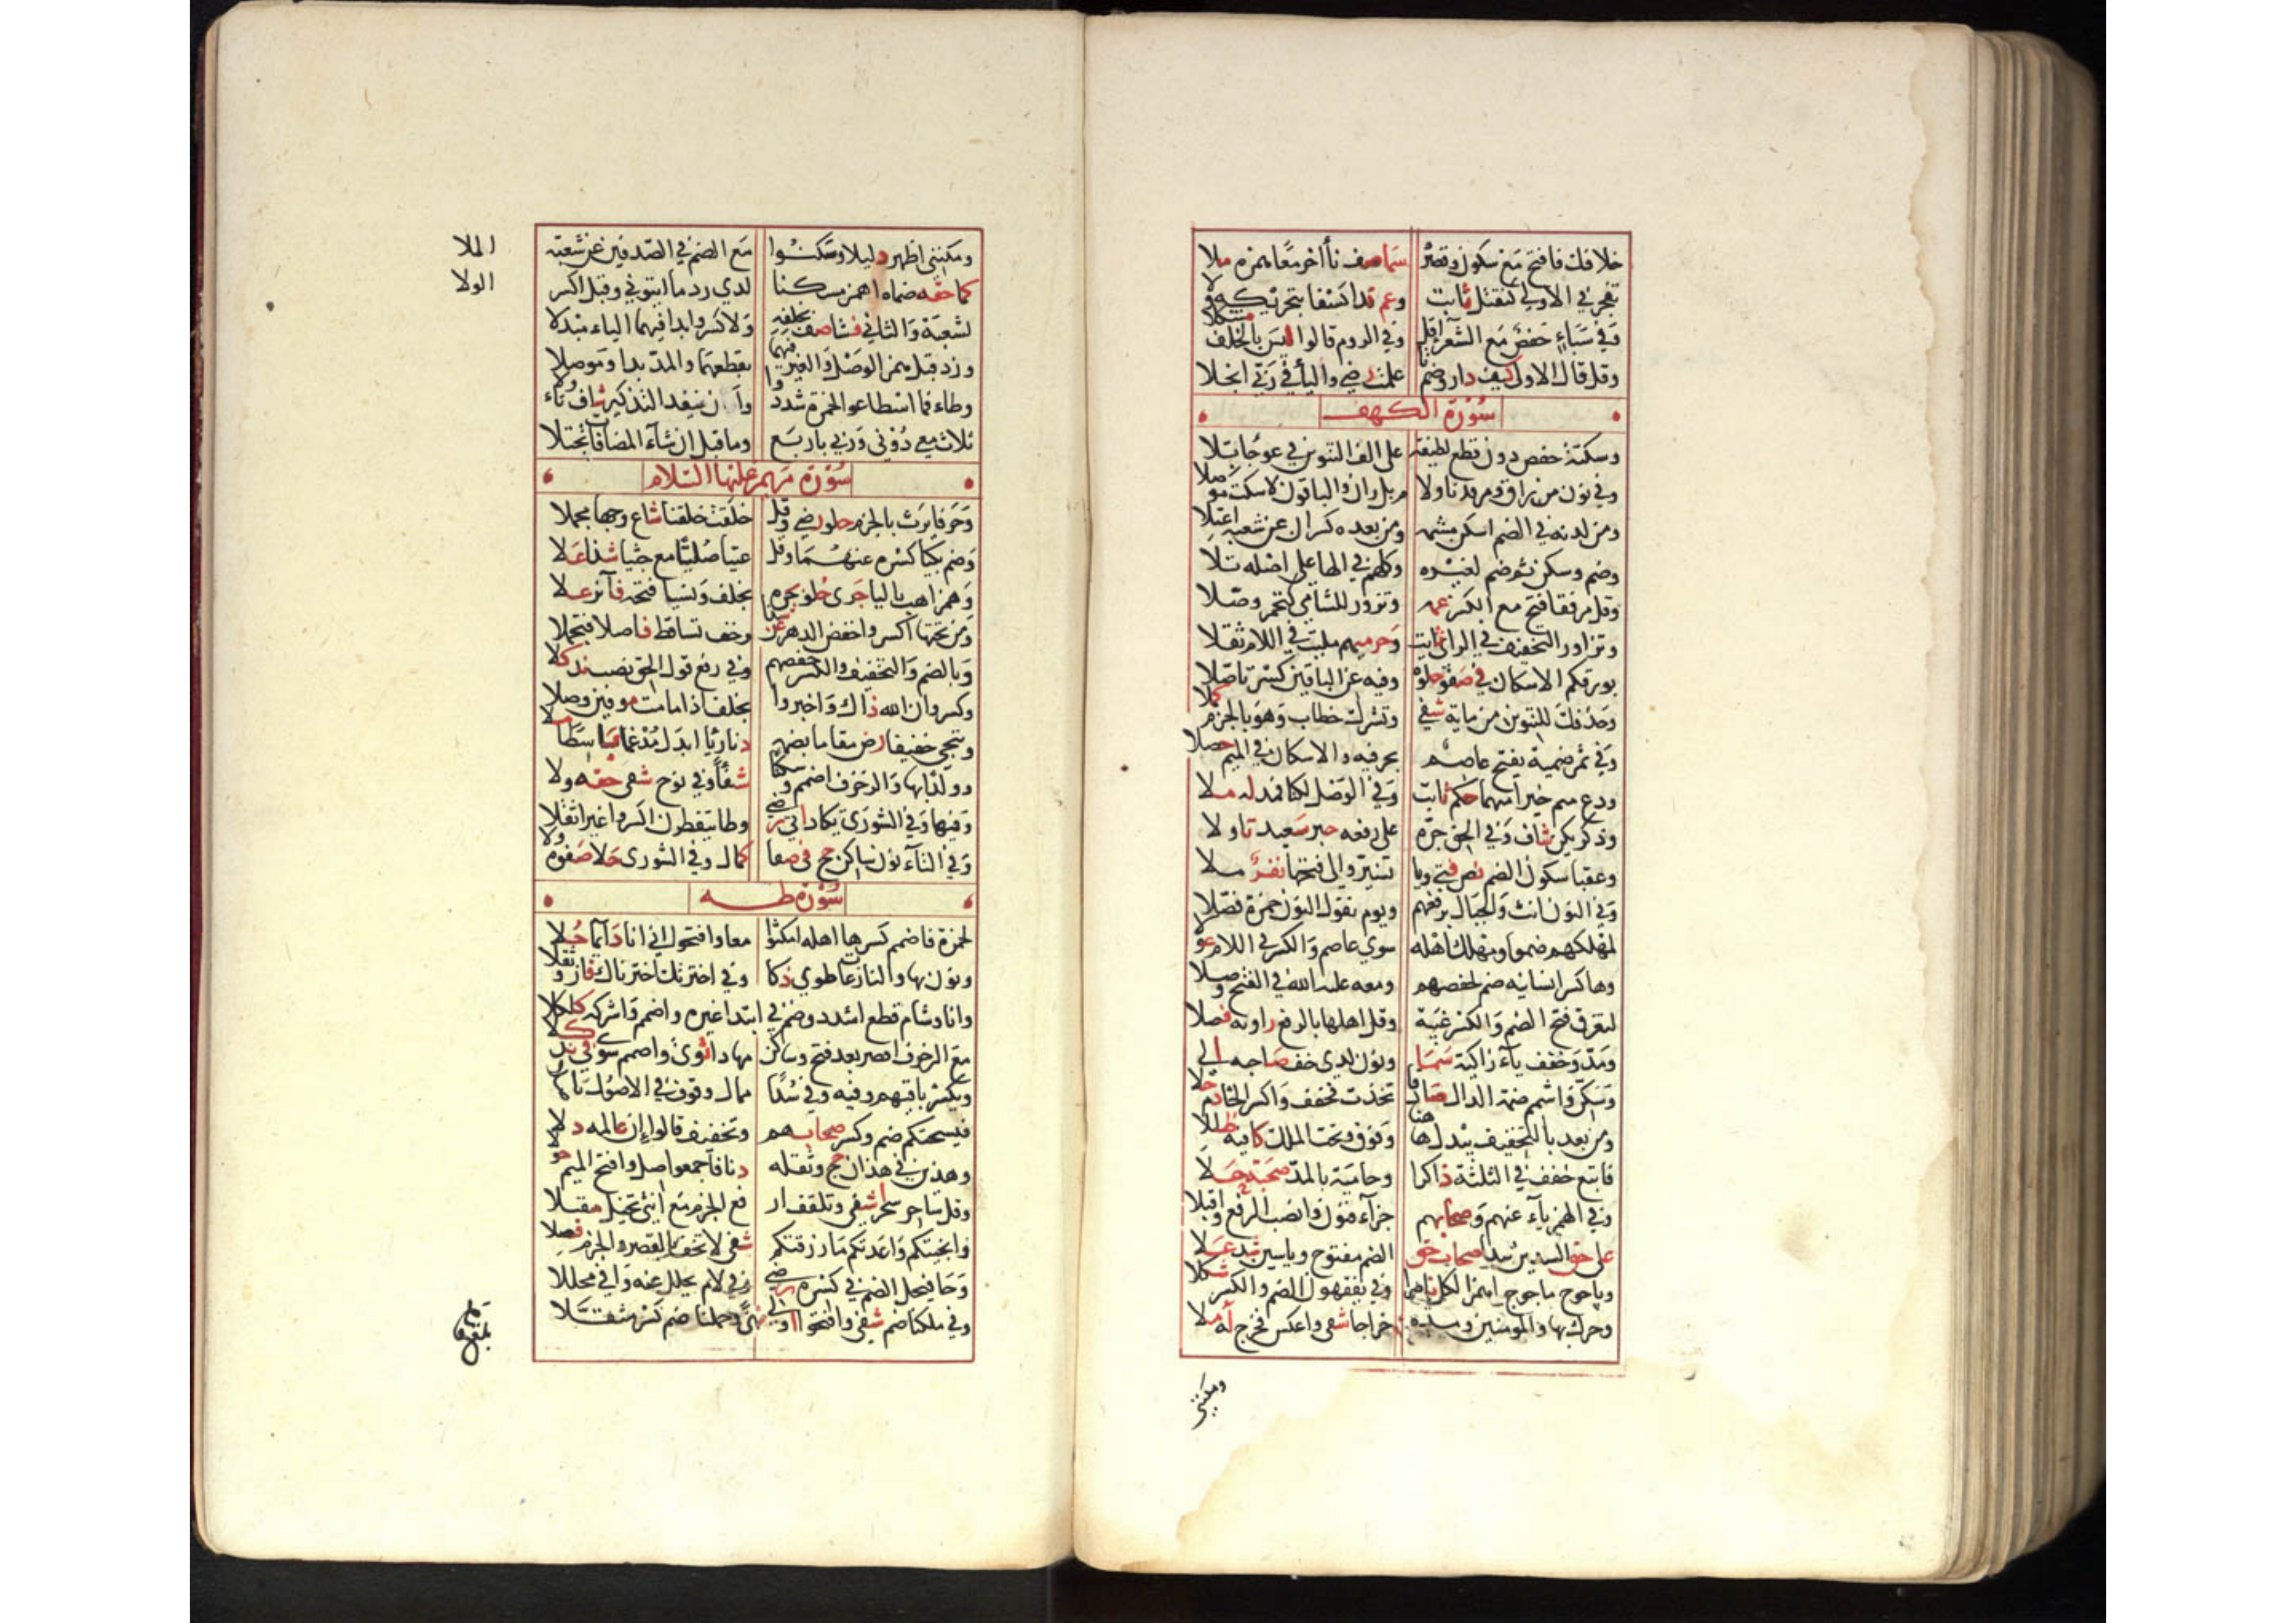 خلافك فافتح مع سكون وقصره سما صف نأى أخر معا همزه ملا
تفجر في الاولى كتقتل ثابت وعم ندا كسفا بتحريكه ولا
وفي سباء حفص مع الشعراء قل وفي الروم قالوا ليس بالخلف مشكلا
وقل قال الاولى كيف دار وضم تا علمت رضي واليأ في ربي انجلا
سورة الكهف
وسكتة حفص دون قطع لطيفة على الف التنوين في عوجا بلا
وفي نون من راق ومرقدنا ولا م بل ران والباقون لا سكت موصلا
ومن لدنه في الضم اسكن مشمه ومن بعده كسران عن شعبة اعتلا
وضم وسكن ثم ضم لغيره وكلهم في الها على اصله تلا
وقل مرفقا فتح مع الكسر عمه وتزور للشامي كتحمر وصلا
وتزاور التخفيف في الزاي ثابت وحرميهم ملئت في اللام ثقلا
بورقكم الاسكان في صفو حلوه وفيه عن الباقين كسر تاصلا
وحذفك للتنوين من ماية شفي وتشرك خطاب وهو بالجزم كملا
وفي ثمر ضميه يفتح عاصم بحرفيه والاسكان في الميم حصلا
ودع ميم خيرا منهما حكم ثابت وفي الوصل لكنا فمد له ملا
وذكر يكن شاف وفي الحق جره على رفعه حبر سعيد تاولا
وعقبا سكون الضم نص فتى ويا نسير والى فتحها نفر ملا
وفي النون انث والجبال برفعهم ويوم نقول النون حمزة فضلا
لمهلكهم ضموا ومهلك اهله سوى عاصم والكسر في اللام عولا
وها كسر انسانيه ضم لحفصهم ومعه عليه الله في الفتح وصلا
لتغرق فتح الضم والكسر غيبة وقل اهلها بالرفع راويه فصلا
ومد وخفف ياء زاكية سما ونون لدني خف صاحبه الى
وسكن واشمم ضمة الدال صادقا تخذت فخفف واكسر الخا دم حلا
ومن بعد بالتخفيف يبدل هاهنا وفوق وتحت الملك كافيه ظللا
فاتبع خفف في الثلثة ذاكرا وحامية بالمد صحبته حلا
وفي الهمز ياء عنهم وصحابهم جزاء فنون وانصب الرفع واقبلا
على حق السدين سدا صحاب حق الضم مفتوح وياسين شد علا
وياجوج ماجوج اهمز الكل ناصرا وفي يفقهون الضم والكسر شكلا
وحرك بها والمؤمنين ومده خراجا شفى واعكس فخرج له ملا
ومكنني
ومكنني اظهر دليلا وسكنوا مع الضم في الصدفين عن شعبة الملا
كما حقه ضماه اهمز مسكنا لدى ردما ايتوني وقبل اكسر الولا
لشعبة والثاني فشا صف بخلفه ولا كسر وابدا فيهما الياء مبدلا
وزد قبل همز الوصل والغير فيهما بقطعهما والمد بدا وموصلا
وطاء فما اسطاعوا لحمزة شددوا وان ينفد التذكير شاف تاولا
ثلاث معي دوني وربي باربع وما قبل ان شاء المضافات تجتلا
سورة مريم عليها السلام
وحرفا يرث بالجزم حلو رضي وقل خلقت خلقنا شاع وجها مجملا
وضم بكيا كسره عنهما وقل عتيا صليا مع جثيا شذا علا
وهمز اهب باليا جرى حلو بحره بخلف ونسيا فتحه فائز علا
ومن تحتها اكسر واخفض الدهر عن شذا وخف تساقط فاصلا فتحملا
وبالضم والتخفيف والكسر حفصهم وفي رفع قول الحق نصب ند كلا
وكسر وان الله ذاك واخبروا بخلف اذا ما مت موفين وصلا
وننجي خفيفا رض مقاما بضمه دنا رئيا ابدل مدغما باسطا ملا
وولدا بها والزخرف اضمم وسكنا شفأ وفي نوح شفى حقه ولا
وفيها وفي الشورى يكاد اتى رضي وطا يتفطرن اكسروا غير اثقلا
وفي التاء نون ساكن حج في صفا كمال وفي الشورى حلا صفوه ولا
سورة طه
لحمزة فاضمم كسر ها اهله امكثوا معا وافتحوا اني انا دائما حلا
ونون بها والنازعات طوى ذكا وفي اخترتك اخترناك فاز وثقلا
وانا وشام قطع اشدد وضم في ابتدا غيره واضمم واشركه كلكلا
مع الزخرف اقصر بعد فتح وساكن مهادا ثوى واضمم سوى في ند كلا
ويكسر باقيهم وفيه وفي سدا ممال وقوف في الاصول تاصلا
فيسحتكم ضم وكسر صحابهم وتخفيف قالوا ان عالمه دلا
وهذين في هذان حج وثقله دنا فاجمعوا صل وافتح الميم حولا
وقل ساحر سحر شفى وتلقف ار فع الجزم مع انثى تخيل مقبلا
وانجيتكم واعدتكم ما رزقتكم شفى لا تخف بالقصر والجزم فصلا
وحا فيحل الضم في كسره رضي وفي لام يحلل عنه وافى محللا
وفي ملكنا ضم شفى وافتحوا اولي نهى وحملنا ضم كسر مثقلا